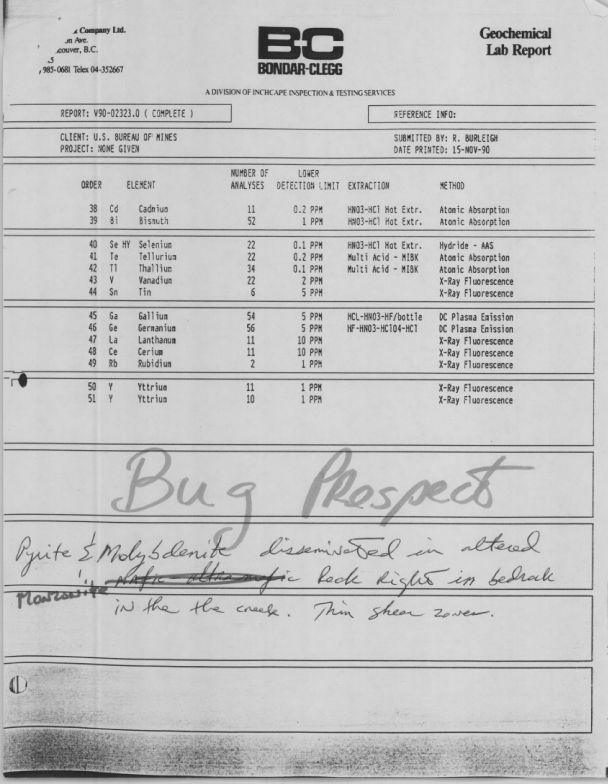 Company Ltd.
Ave.
couver, B.C.
5
985-0681 Telex 04-352667
BC
BONDAR-CLEGG
Geochemical
Lab Report
A DIVISION OF INCHCAPE INSPECTION & TESTING SERVICES
REPORT: V90-02323.0 ( COMPLETE )
REFERENCE INFO:
CLIENT: U.S. BUREAU OF MINES
PROJECT: NONE GIVEN
SUBMITTED BY: R. BURLEIGH
DATE PRINTED: 15-NOV-90
NUMBER OF LOWER
ORDER ELEMENT ANALYSES DETECTION LIMIT EXTRACTION METHOD
38 Cd Cadmium 11 0.2 PPM HNO3-HCl Hot Extr. Atomic Absorption
39 Bi Bismuth 52 1 PPM HNO3-HCl Hot Extr. Atomic Absorption
40 Se HY Selenium 22 0.1 PPM HNO3-HCl Hot Extr. Hydride - AAS
41 Te Tellurium 22 0.2 PPM Multi Acid - MIBK Atomic Absorption
42 Tl Thallium 34 0.1 PPM Multi Acid - MIBK Atomic Absorption
43 V Vanadium 22 2 PPM X-Ray Fluorescence
44 Sn Tin 6 5 PPM X-Ray Fluorescence
45 Ga Gallium 54 5 PPM HCL-HNO3-HF/bottle DC Plasma Emission
46 Ge Germanium 56 5 PPM HF-HNO3-HClO4-HCl DC Plasma Emission
47 La Lanthanum 11 10 PPM X-Ray Fluorescence
48 Ce Cerium 11 10 PPM X-Ray Fluorescence
49 Rb Rubidium 2 1 PPM X-Ray Fluorescence
50 Y Yttrium 11 1 PPM X-Ray Fluorescence
51 Y Yttrium 10 1 PPM X-Ray Fluorescence
Bug Prospect
Pyrite & Molybdenite disseminated in altered
Monzonite mafic ultramafic Rock Right in bedrock
in the the creek. Thin shear zones.